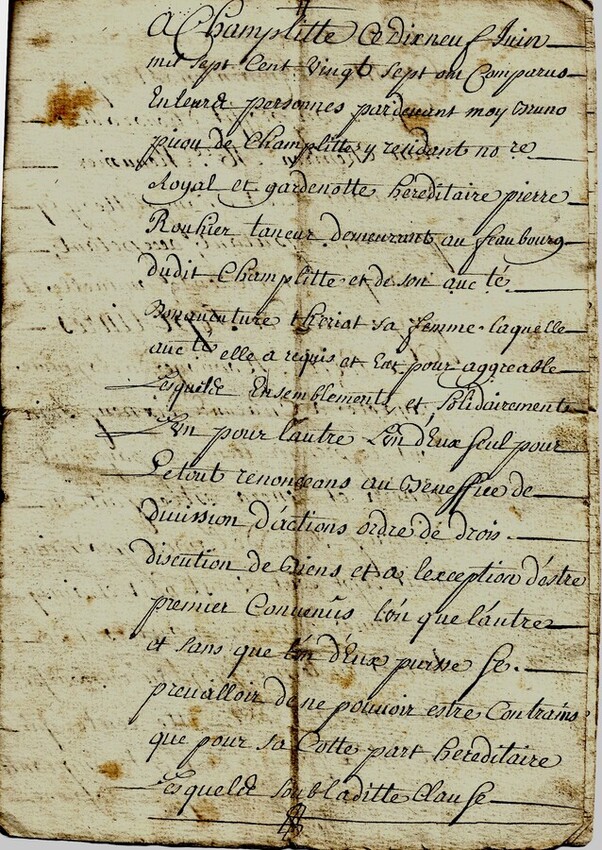 A Champlitte Ce dixneuf Juin
mil sept Cent Vingt sept ont Comparus
En leurs personnes pardevant moy Bruno
piot de Champlitte y residant no re
Royal et gardenotte héréditaire pierre
Rouhier taneur demeurant au feaubourg
dudit Champlitte et de son auc té
Bonaventure theriat sa femme laquelle
auc té elle a requis et Eu pour aggreable
Lesquels Ensemblement et Solidairement
L'un pour l'autre L'un d'Eux seul pour
Le tout renonceans au Beneffice de
division d'actions ordre de drois
discution de biens et a l'exception d'estre
premier Convenus l'un que l'autre
et sans que l'un d'Eux puisse se
prevalloir de ne pouvoir estre Contrains
que pour sa Cotte part hereditaire
Lesquels soub laditte Clause